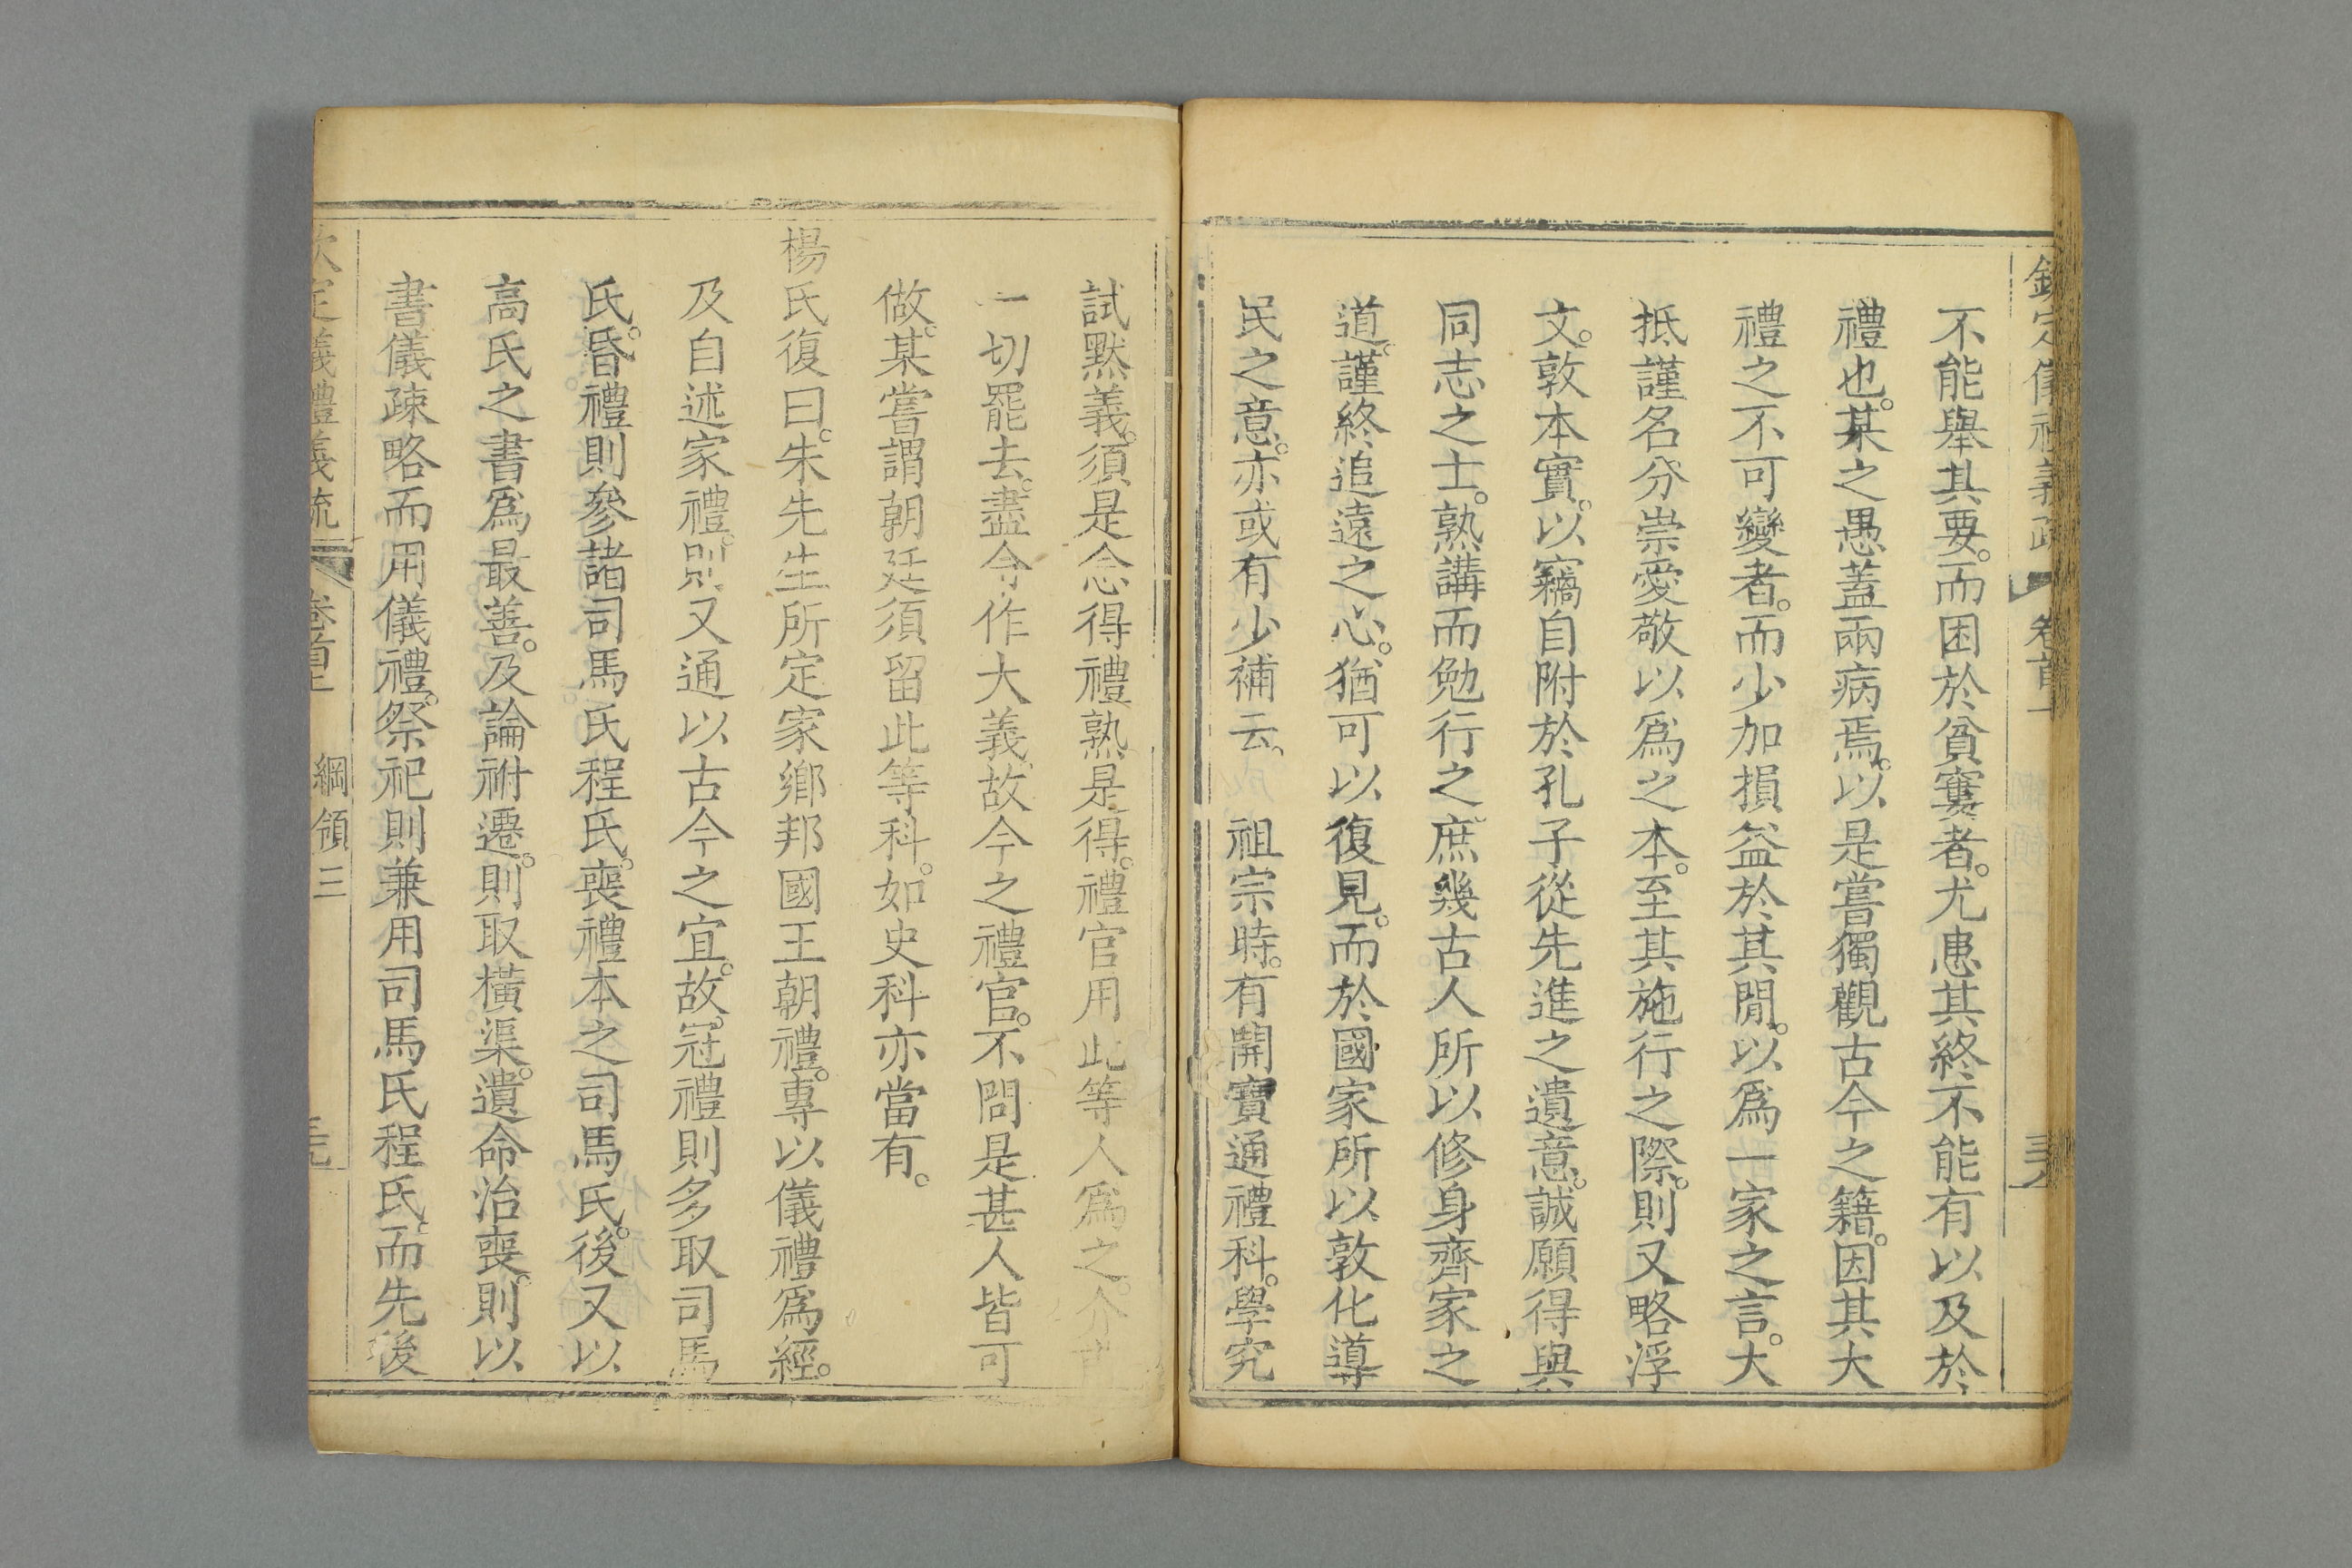 欽定儀禮義疏 卷首一
不能舉其要。而困於貧窶者。尤患其終不能有以及於
禮也。某之愚蓋兩病焉。以是嘗獨觀古今之籍。因其大
禮之不可變者。而少加損益於其閒。以爲一家之言。大
抵謹名分崇愛敬以爲之本。至其施行之際。則又略浮
文。敦本實。以竊自附於孔子從先進之遺意。誠願得與
同志之士。熟講而勉行之。庶幾古人所以修身齊家之
道。謹終追遠之心。猶可以復見。而於國家所以敦化導
民之意。亦或有少補云。 祖宗時。有開寶通禮科。學究
試默義。須是念得禮熟。是得。禮官用此等人爲之。介甫
一切罷去。盡令作大義。故今之禮官。不問是甚人皆可
做。某嘗謂朝廷須留此等科。如史科亦當有。
楊氏復曰。朱先生所定家鄉邦國王朝禮。專以儀禮爲經。
及自述家禮。則又通以古今之宜。故冠禮則多取司馬
氏。昏禮則參諸司馬氏程氏。喪禮本之司馬氏。後又以
高氏之書爲最善。及論祔遷。則取橫渠。遺命治喪。則以
書儀疎略而用儀禮。祭祀則兼用司馬氏程氏。而先後
欽定儀禮義疏 卷首上 綱領三